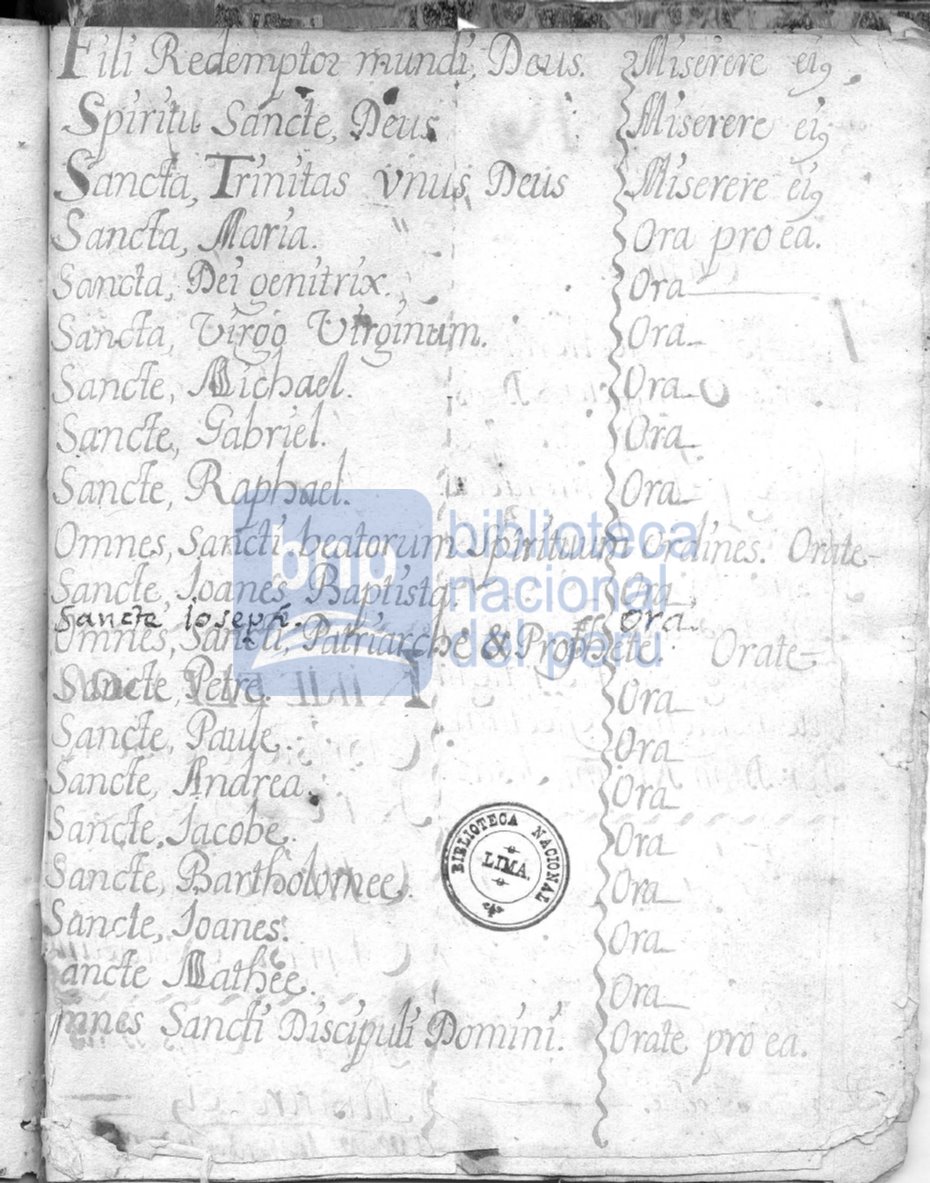 Fili Redemptor mundi, Deus. Miserere ei9
Spiritu Sancte, Deus Miserere ei9
Sancta, Trinitas vnus Deus Miserere ei9
Sancta, Maria. Ora pro ea.
Sancta, Dei genitrix. Ora
Sancta, Virgo Virginum. Ora
Sancte, Michael. Ora
Sancte, Gabriel. Ora
Sancte, Raphael. Ora
Omnes, Sancti beatorum Spirituum Ordines. Orate
Sancte Joanes Baptista. Ora
Sancte Joseph. Ora
Omnes, Sancti, Patriarche & Prophete. Orate
Sancte, Petre. Ora
Sancte, Paule. Ora
Sancte, Andrea. Ora
Sancte, Jacobe. Ora
Sancte, Bartholomee. Ora
Sancte, Joanes. Ora
ancte Mathee. Ora
mnes Sancti Discipuli Domini. Orate pro ea.
bnp biblioteca
nacional
del perú
BIBLIOTECA NACIONAL
LIMA.